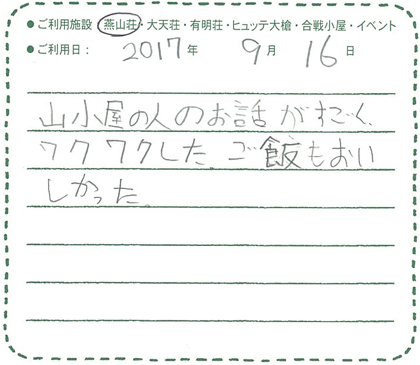 ●ご利用施設 燕山荘・大天荘・有明荘・ヒュッテ大槍・合戦小屋・イベント
●ご利用日： 2017年 9月 16日
山小屋の人のお話がすごく、
ワクワクした。ご飯もおい
しかった。